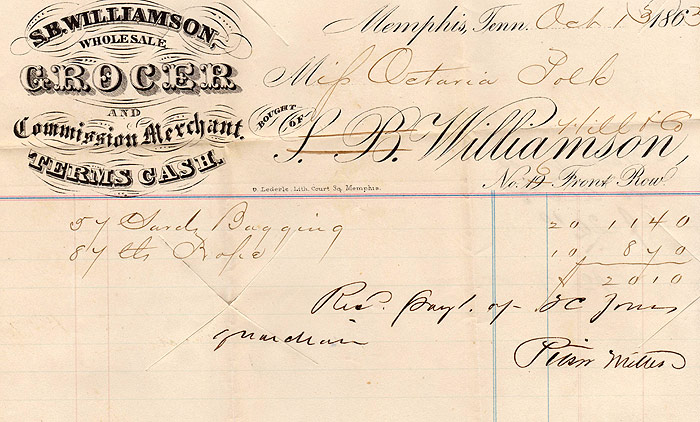 S.B. WILLIAMSON,
WHOLESALE
GROCER
AND
Commission Merchant.
TERMS CASH.
Memphis, Tenn. Oct 13 1863
Miss Octavia Polk
BOUGHT OF
S. B. Williamson,
Hill & Co
No. 19 Front Row
Lederle. Lith. Court Sq. Memphis.
57 Yards Bagging 20 1140
87 lbs Rope 10 870
2010
Recd. Payt. of Jones
guardian